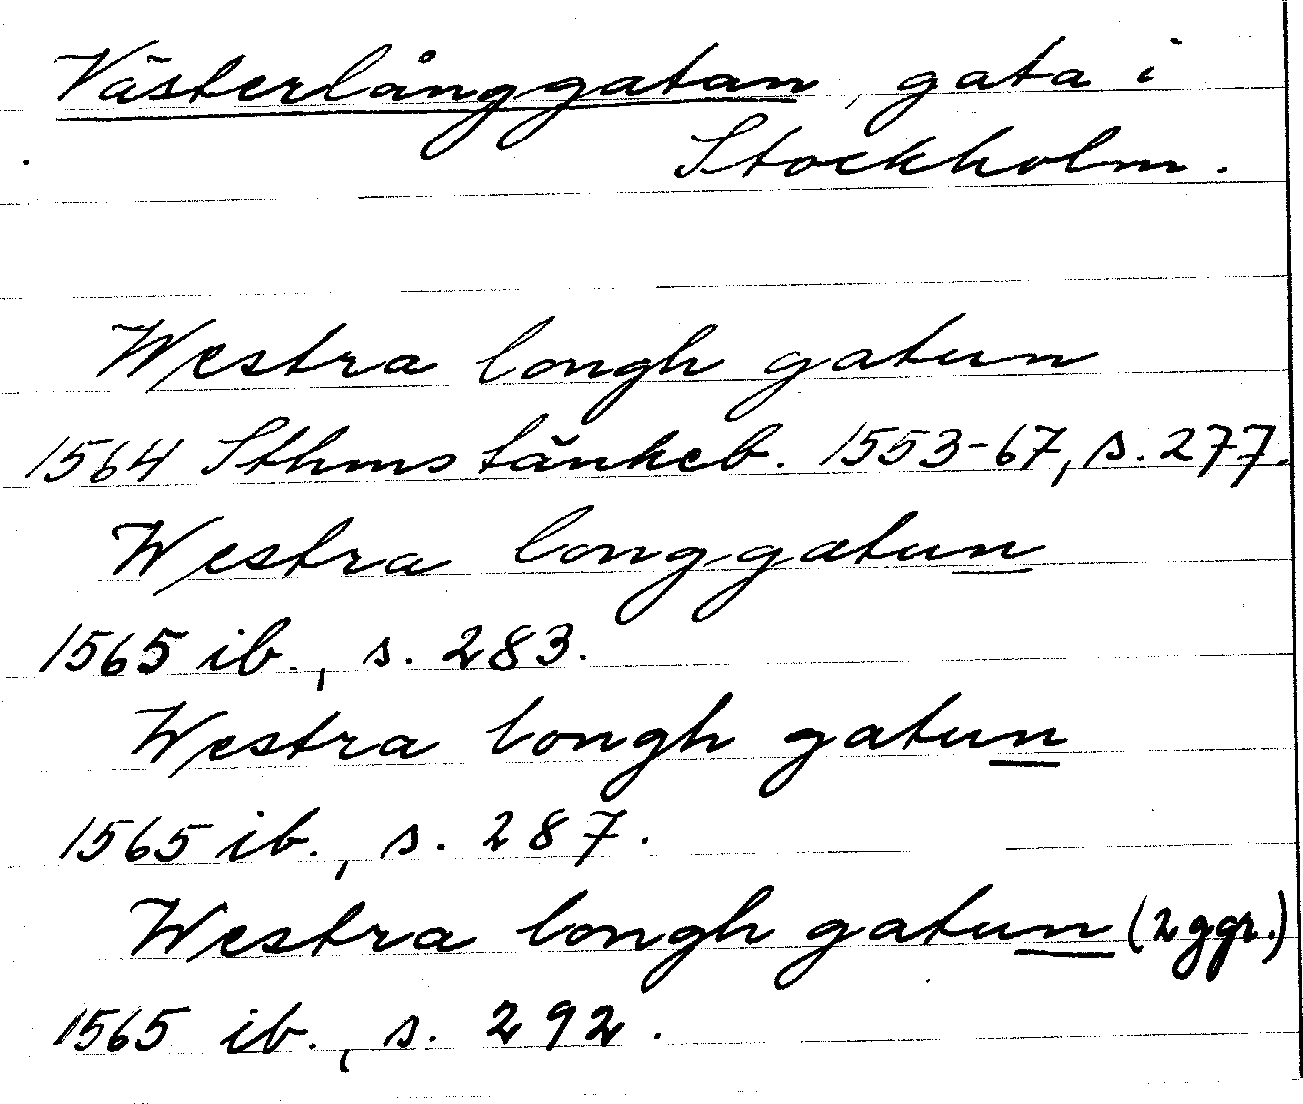 Västerlånggatan, gata i
Stockholm.
Westra longh gatun
1564 Sthms tänkeb. 1553-67, s. 277.
Westra longgatun
1565 ib., s. 283.
Westra longh gatun
1565 ib., s. 287.
Westra longh gatun (2 ggr.)
1565 ib., s. 292.